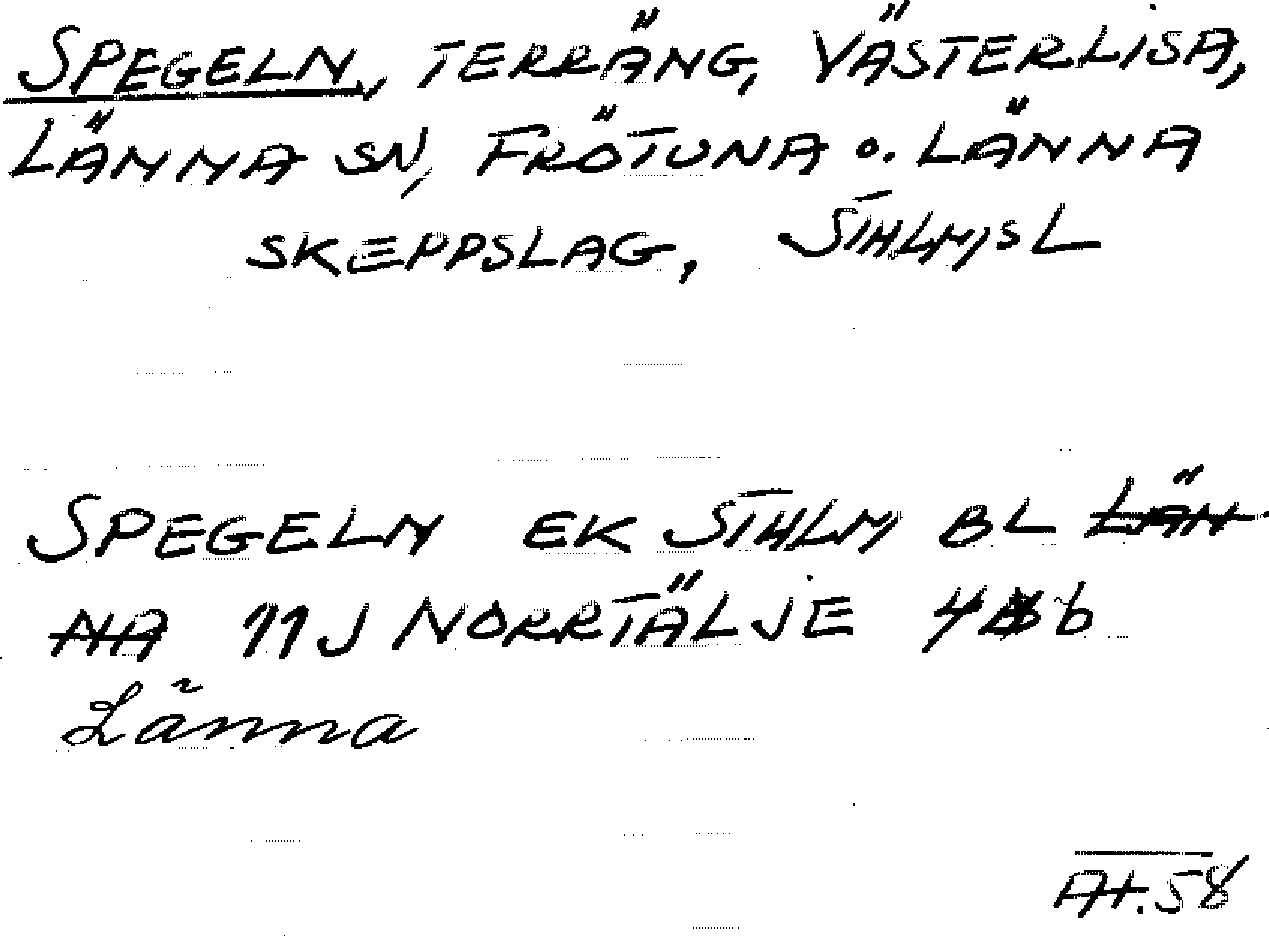 SPEGELN, TERRÄNG, VÄSTERLISA,
LÄNNA SN, FRÖTUNA o. LÄNNA
SKEPPSLAG, STHLMSL
SPEGELN EK STHLM BL LÄN
NA 11J NORRTÄLJE 4 b
Länna
At.58